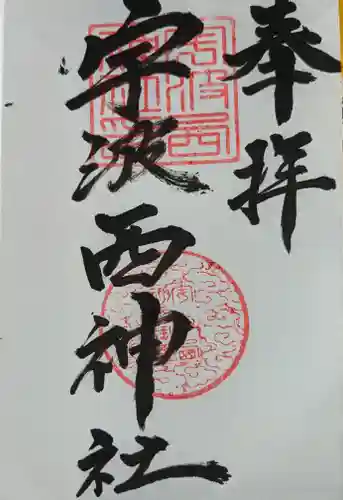 奉拝
宇波西神社